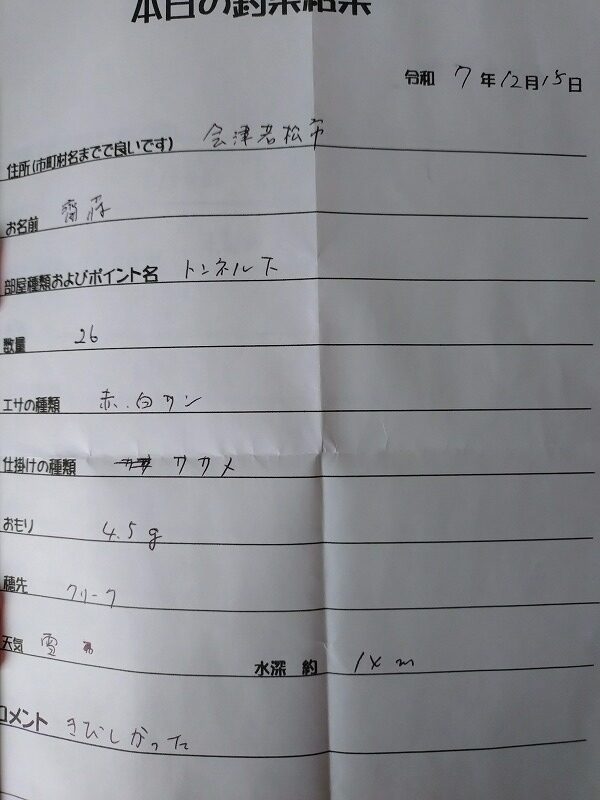 本日の釣果結果
令和 7年12月15日
住所(市町村名までで良いです) 会津若松市
お名前 齋藤
部屋種類およびポイント名 トンネル下
数量 26
エサの種類 赤.白サシ
仕掛けの種類 ワカメ
おもり 4.5g
穂先 クリーク
天気 雪 水深 約 1 m
コメント きびしかった